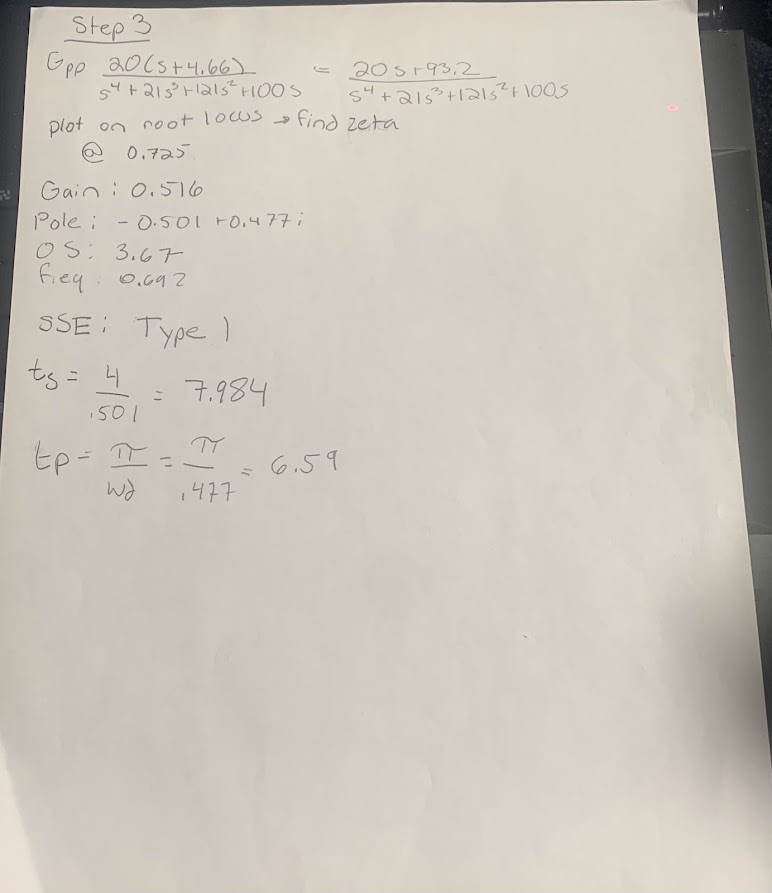 Step 3
Gpp 20(s+4.66) / s⁴+21s³+121s²+100s = 20s+93.2 / s⁴+21s³+121s²+100s
plot on root locus → find zeta
@ 0.725
Gain: 0.516
Pole: -0.501+0.477i
OS: 3.67
freq: 0.692
SSE: Type 1
ts = 4/.501 = 7.984
tp = π/wd = π/.477 = 6.59